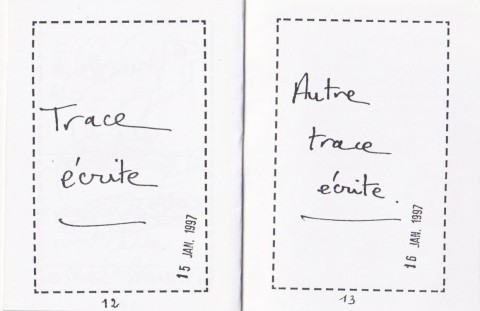 Trace
écrite
15 JAN. 1997
12
Autre
trace
écrite.
16 JAN. 1997
13